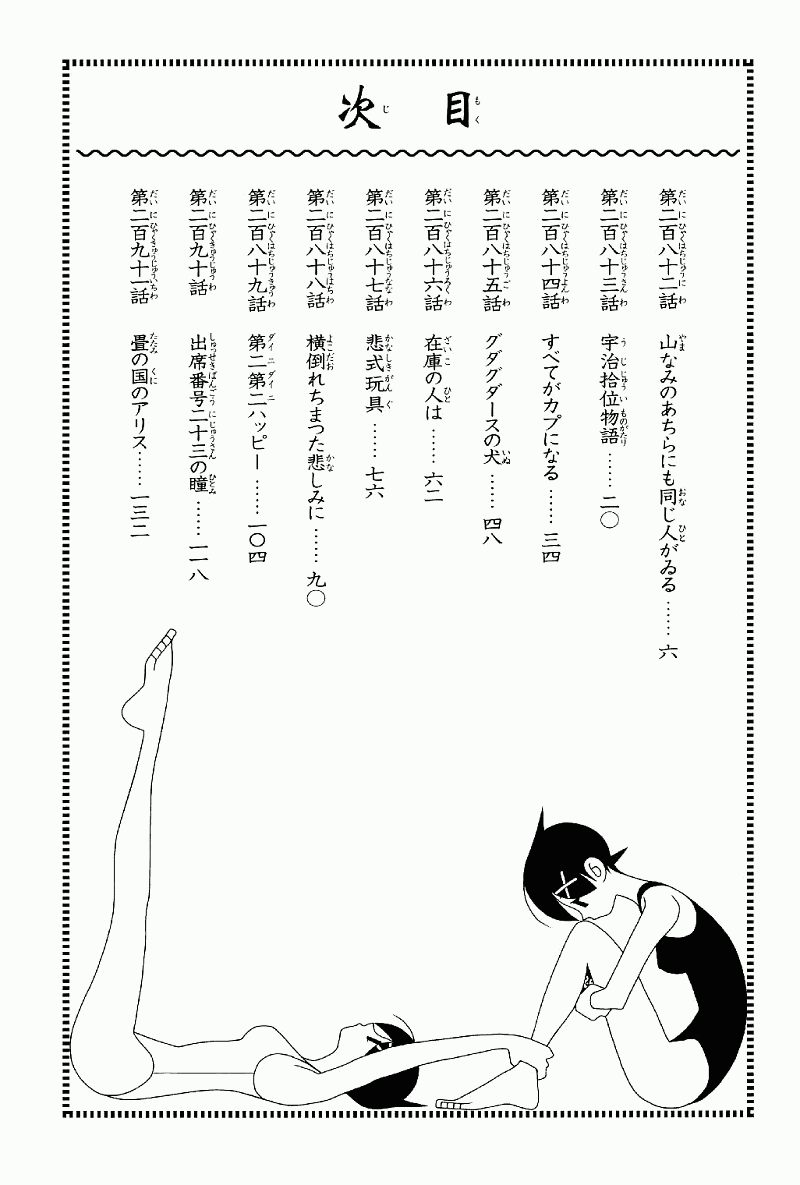 目次
第二百八十二話 山なみのあちらにも同じ人がゐる……六
第二百八十三話 宇治拾位物語……二〇
第二百八十四話 すべてがカプになる……三四
第二百八十五話 グダグダースの犬……四八
第二百八十六話 在庫の人は……六二
第二百八十七話 悲式玩具……七六
第二百八十八話 横倒れちまつた悲しみに……九〇
第二百八十九話 第二第二ハッピー……一〇四
第二百九十話 出席番号二十三の瞳……一一八
第二百九十一話 畳の国のアリス……一三二